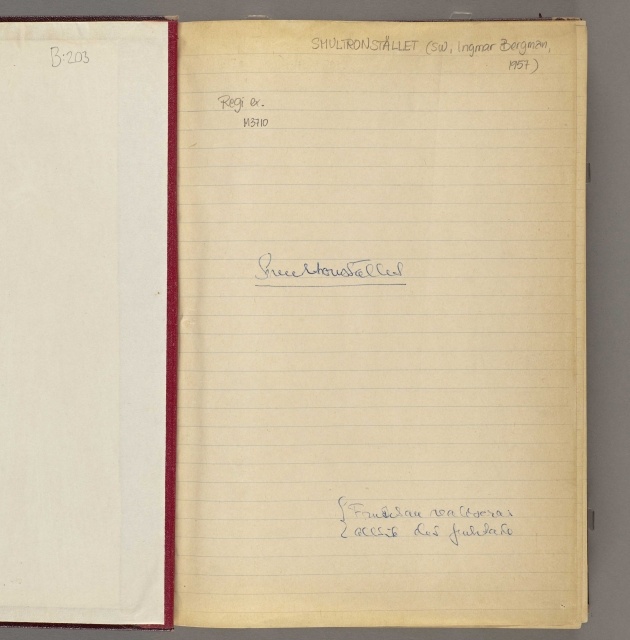 B:203
SMULTRONSTÄLLET (sw, Ingmar Bergman,
1957)
Regi ex.
H3710
Smultronstället
alltid det